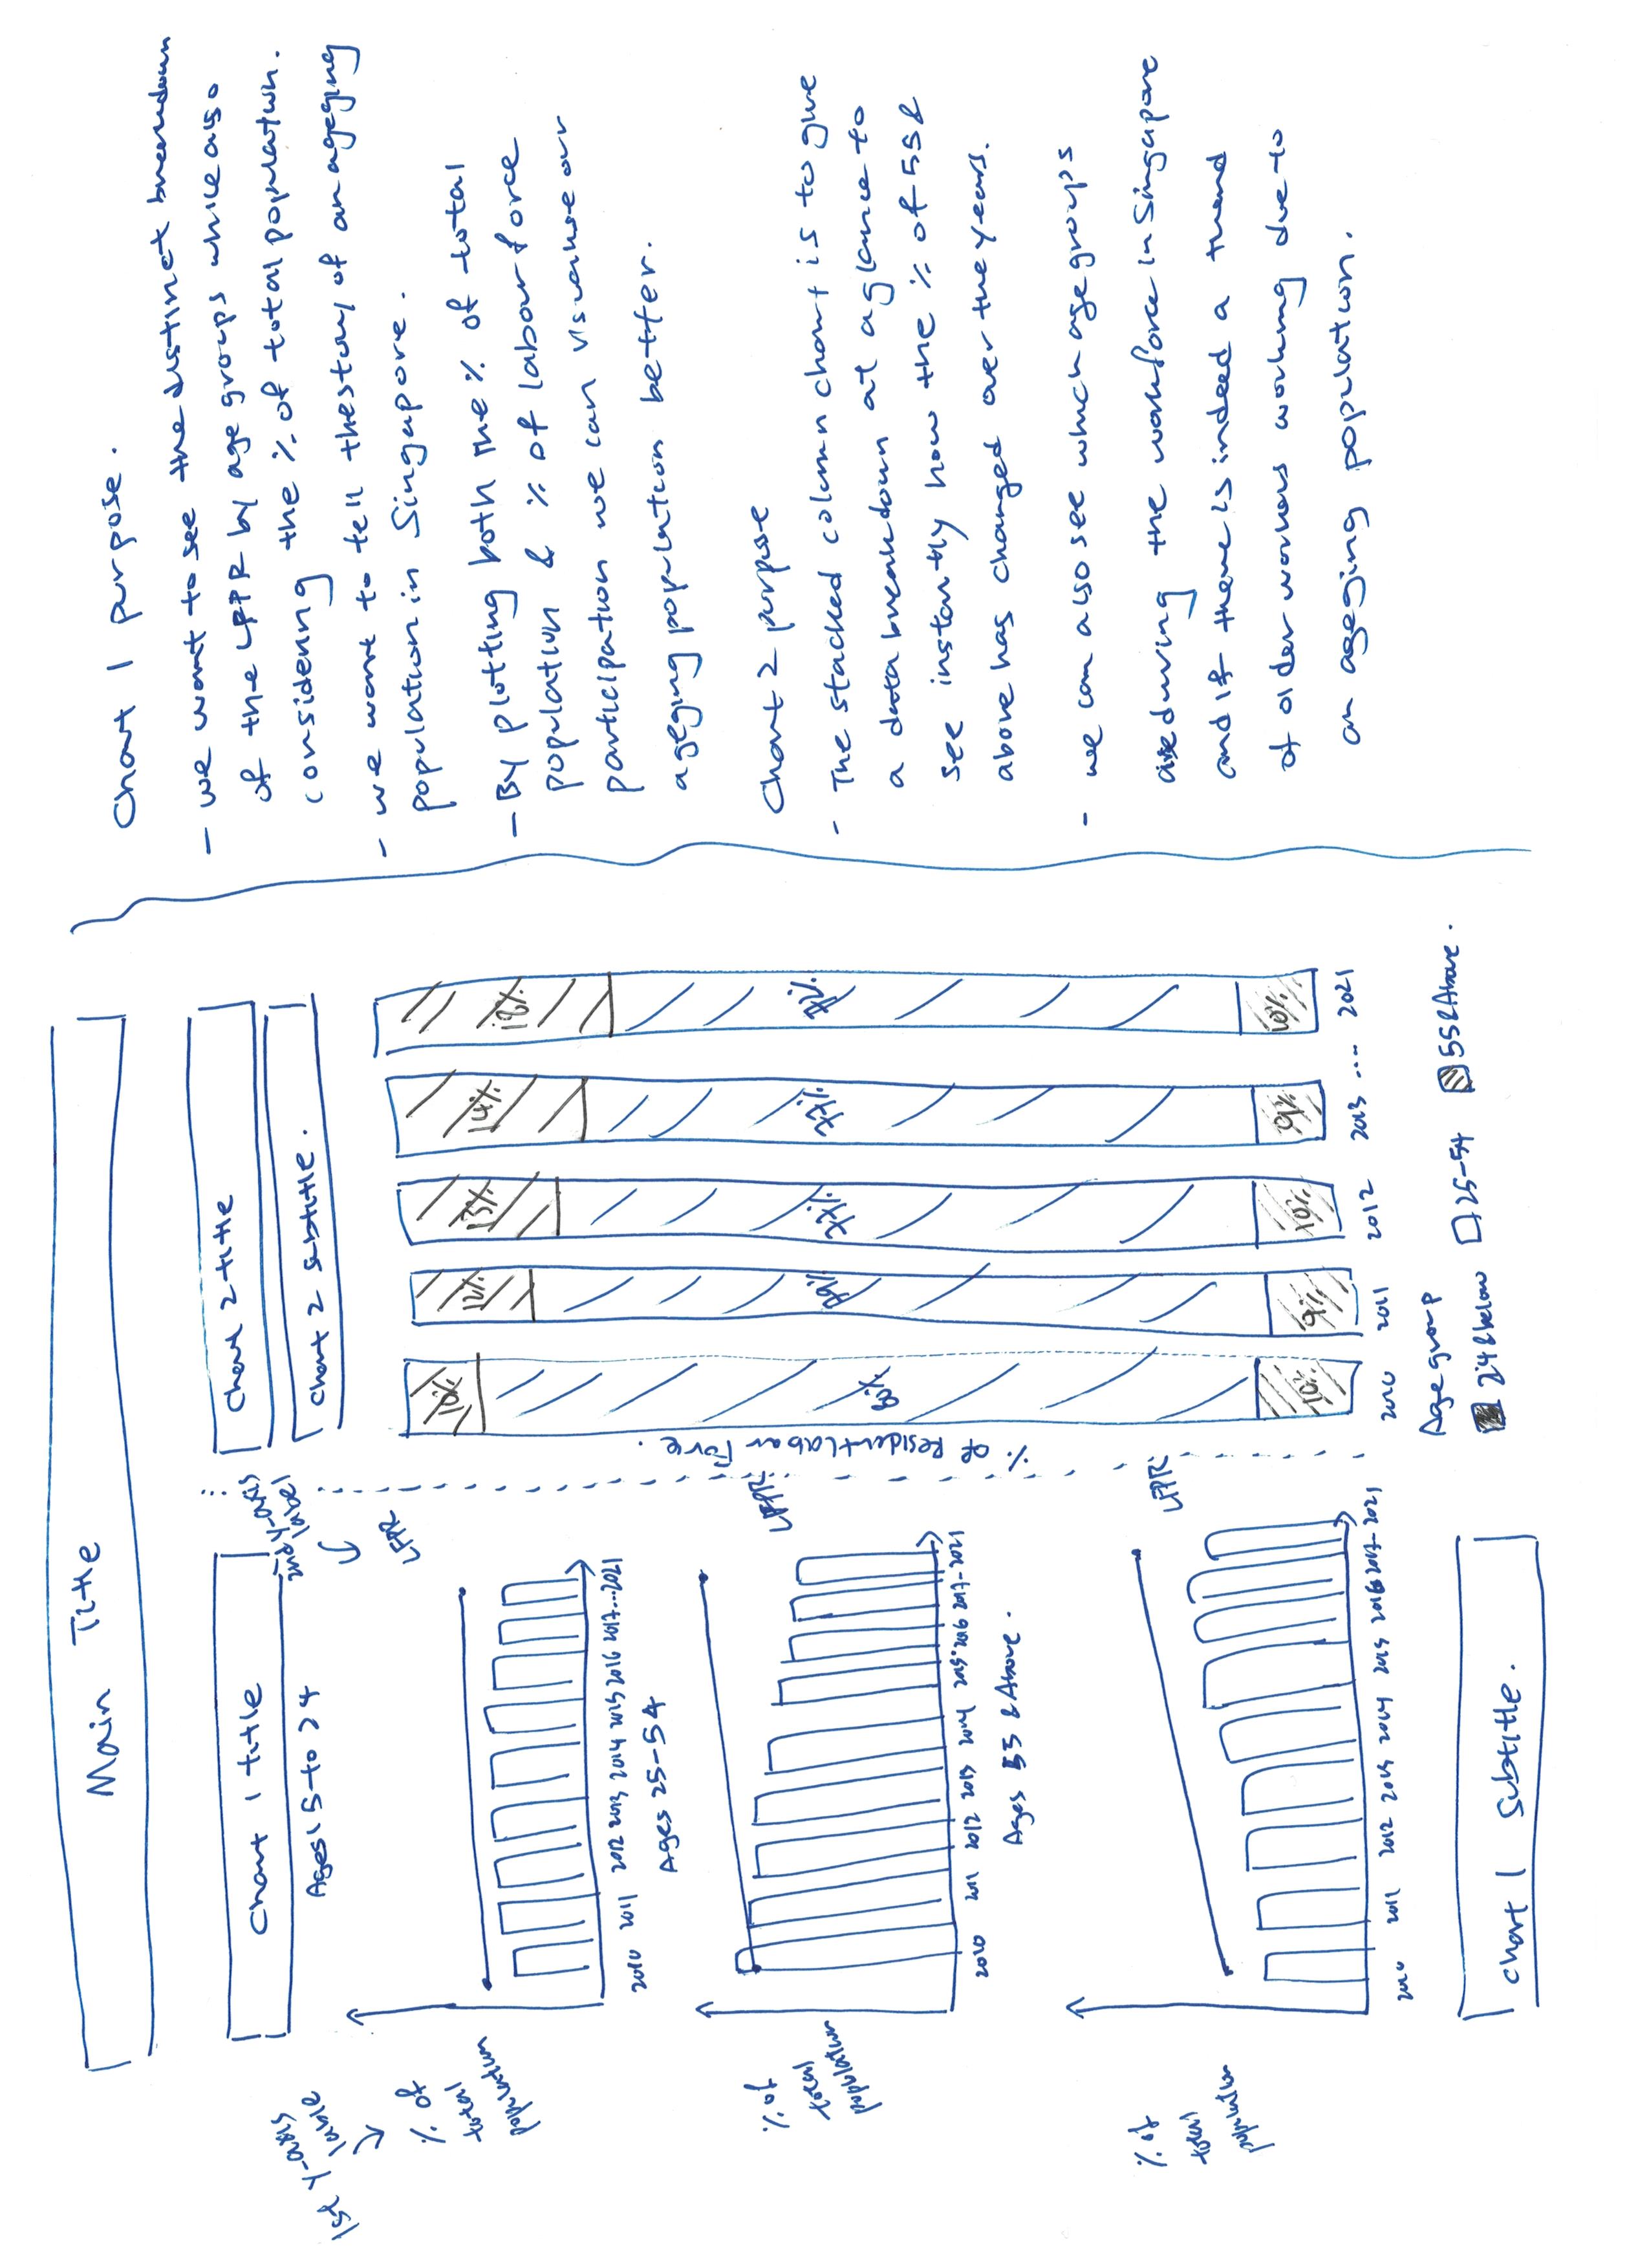 Main Title
Chart 1 title
Ages 15 to 24
1st Y-axis
lable
% of
total
population
2nd Y-axis
label
LFPR
2010 2011 2012 2013 2014 2015 2016 2017...2021
Ages 25-54
% of
total
population
LFPR
2010 2011 2012 2013 2014 2015 2016 2017-2021
Ages 55 & Above.
% of
total
population
LFPR
2010 2011 2012 2013 2014 2015 2016 2017-2021
Chart 1 subtitle.
Chart 2 title
Chart 2 subtitle.
% of Resident Labar Force.
10% 12% 13% 14% 18%
80% 79% 77% 77% 72%
10% 9% 10% 9% 10%
2010 2011 2012 2013 .... 2021
Age group
24 & below 25-54 55 & Above.
Chart 1 purpose.
- we want to see the distinct breakdown
of the LFPR by age groups while also
considering the % of total population.
- we want to tell the story of an ageging
population in Singapore.
- By plotting both the % of total
population & % of labour force
participation we can visualise our
ageging population better.
Chart 2 purpose
- The stacked column chart is to give
a data breakdown at a glance to
see instantly how the % of 55 &
above has changed over the years.
- we can also see which age groups
are during the workforce in Singapore
and if there is indeed a trend
of older workers working due to
an ageging population.